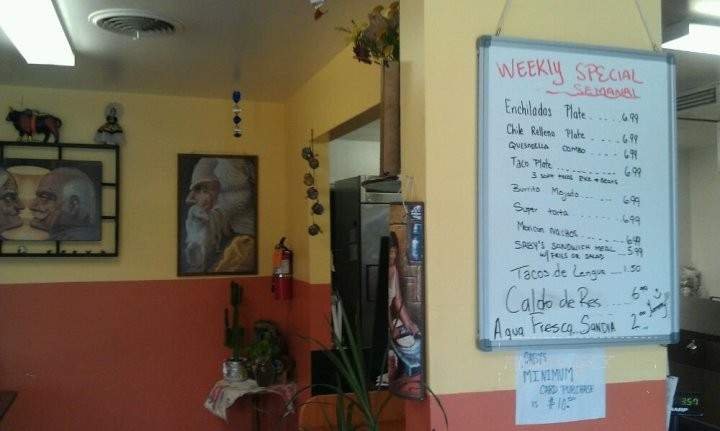 WEEKLY SPECIAL
SEMANAL
Enchiladas Plate ..... 6.99
Chile Relleno Plate .... 6.99
QUESADILLA COMBO ... 6.99
Taco Plate .......... 6.99
3 SOFT TACOS RICE & BEANS
Burrito Mojado .... 6.99
Super torta ....... 6.99
Mexican NACHOS ....... 6.99
SABY'S SANDWICH MEAL .. 5.99
W/ FRIES OR SALAD
Tacos de Lengua .... 1.50
Caldo de Res ..... 6.00 Yummy
Agua Fresca... SANDIA 2.00
SABYS
MINIMUM
CARD PURCHASE
IS $10.00